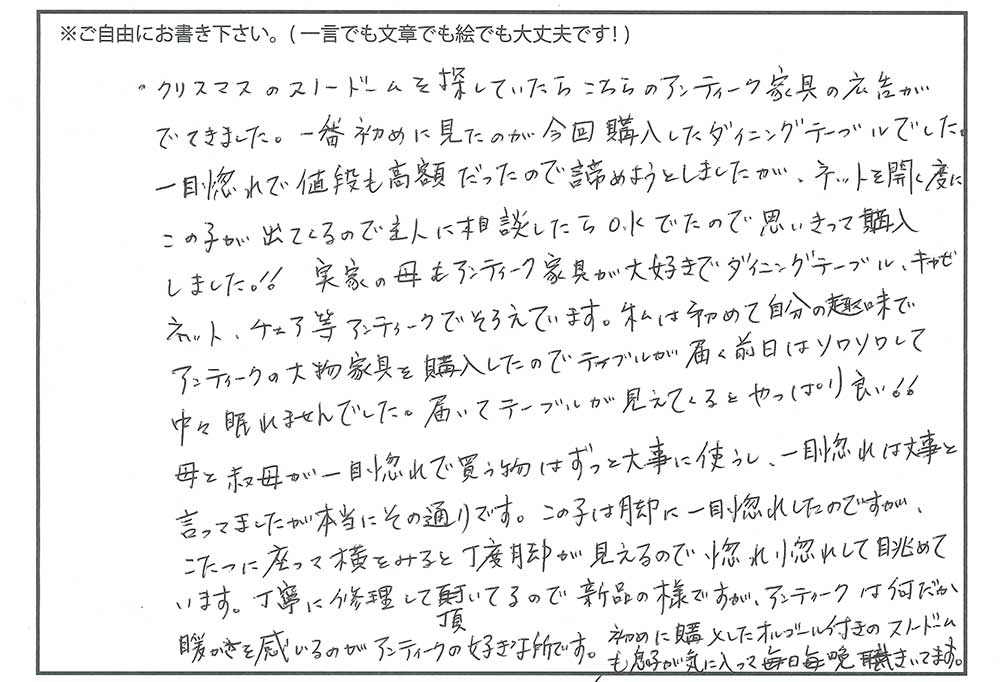 ※ご自由にお書き下さい。(一言でも文章でも絵でも大丈夫です!)
・クリスマスのスノードームを探していたらこちらのアンティーク家具の広告が
でてきました。一番初めに見たのが今回購入したダイニングテーブルでした。
一目惚れで値段も高額だったので諦めようとしましたが、ネットを開く度に
この子が出てくるので主人に相談したらO.Kでたので思いきって購入
しました!! 実家の母もアンティーク家具が大好きでダイニングテーブル、キャビ
ネット、チェア等アンティークでそろえています。私は初めて自分の趣味で
アンティークの大物家具を購入したのでテーブルが届く前日はソワソワして
中々眠れませんでした。届いてテーブルが見えてくるとやっぱり良い!!
母と叔母が一目惚れで買う物はずっと大事に使うし、一目惚れは大事と
言ってましたが本当にその通りです。この子は脚に一目惚れしたのですが、
こたつに座って横をみると丁度脚が見えるので惚れ惚れして眺めて
います。丁寧に修理して頂いてるので新品の様ですが、アンティークは何だか
暖かさを感いるのがアンティークの好きな所です。初めに購入したオルゴール付きのスノードーム
も息子が気に入って毎日毎晩聴きいてます。